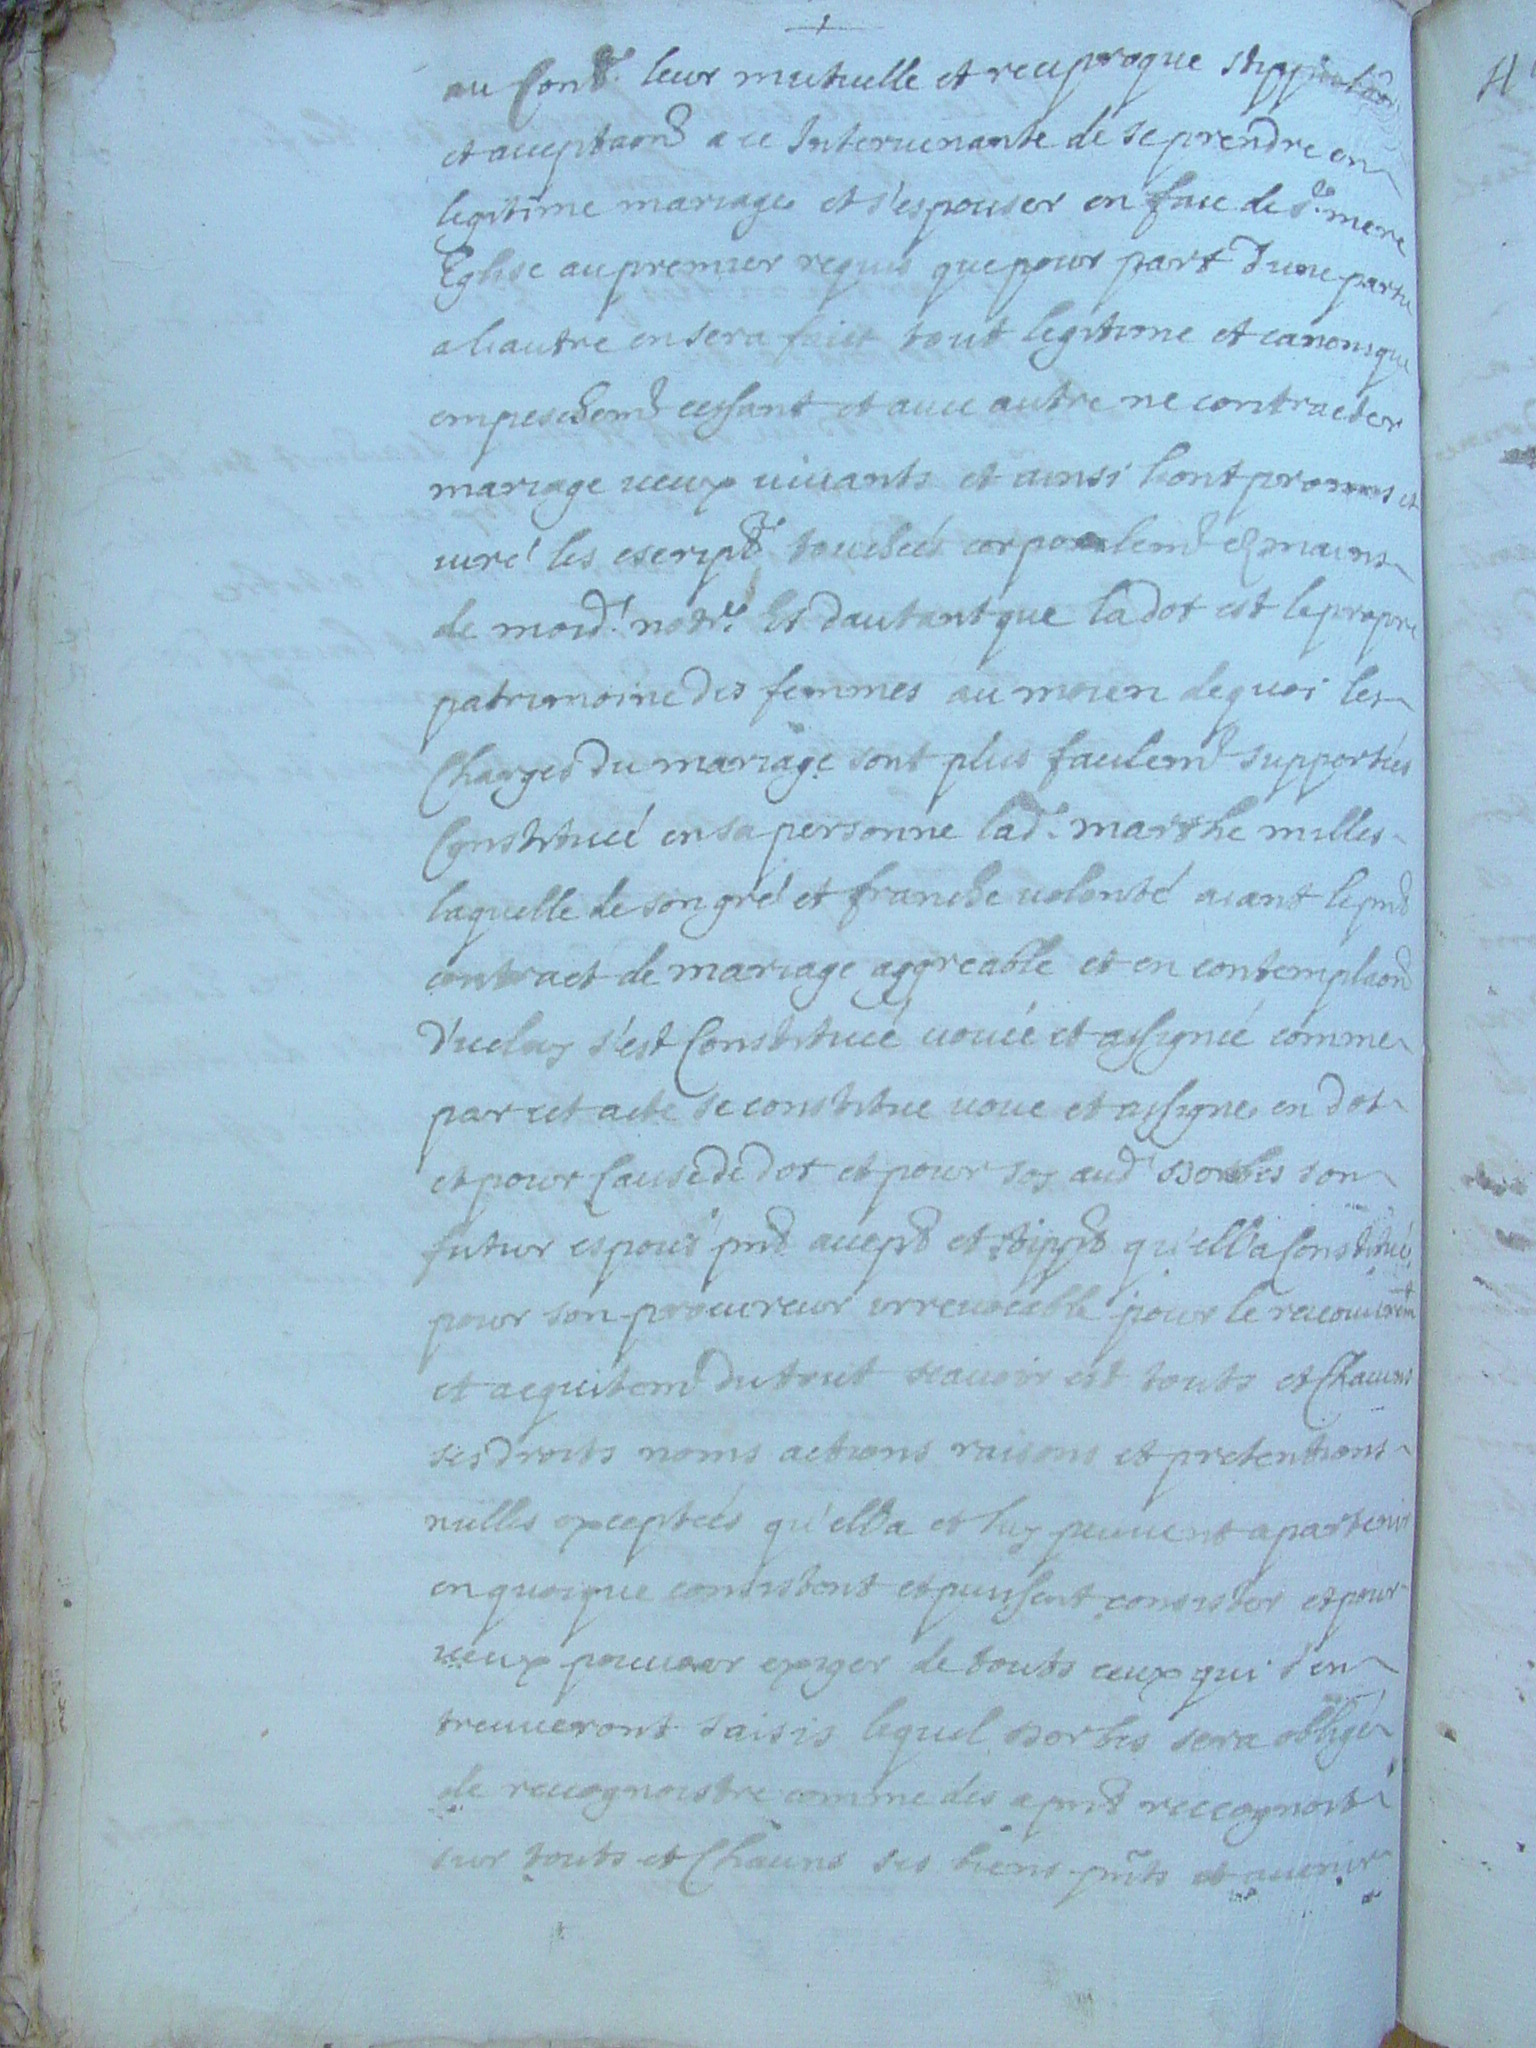 au Cont.^t leur mutuelle et reciproque stippulaōn
et acceptaon^d a ce Interuenante de se prendre en
legitime mariage et s'espouser en face de s.^te mere
Eglise au premier requis que pour part d'une partie
a l'autre en sera faict tout legitime et canonique
empeschem^t cessant et auec autre ne contracter
mariage iceux uiuants et ainsi l'ont promis et
iuré les escript^s touchées corporelem^t es mains
de moid.^t not.^re Et dautant que la dot est le propre
patrimoine des femmes au moien de quoi les
Charges du mariage sont plus facilem^t supportées
Constituée en sa personne lad.^e marthe milles
laquelle de son gré et franche uolonté aiant le pnt
contract de mariage aggreable et en contemplaon^d
d'iceluy s'est Constituée uouée et assignée comme
par cet acte se constitue uoue et assigne en dot
et pour Cause de dot et pour soy aud^t son
futur espous pnt accept^t et stippt qu'ell'a Constitué
pour son procureur irreuocable pour le recouurem^t
et acquitem^t du truit scauoir est touts et Chacuns
ses droits noms actions raisons et pretentions
nulles exceptées qu'ell'a et luy peuuent apartenir
en quoi que consistent et puissent consister et pour
iceux pouuoir exiger de touts ceux qui s'en
treuueront saisis lequel sera obligé
de recognoistre comme des apnt reccognoit
sur touts et Chacuns ses biens pnts et auenir